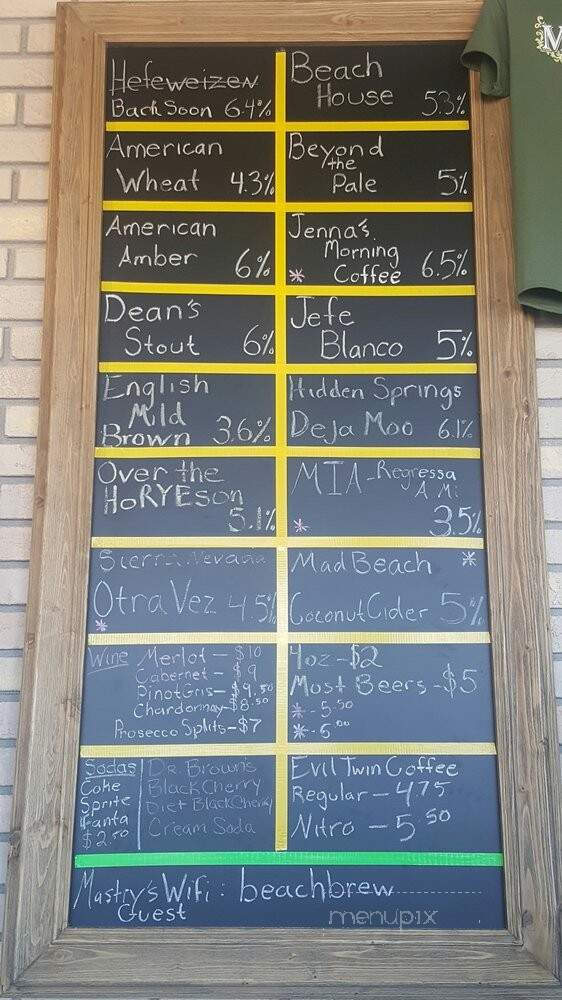 Hefeweizen
Back Soon 6.4%
American
Wheat 4.3%
American
Amber 6%
Dean's
Stout 6%
English
Mild
Brown 3.6%
Over the
HoRYEson
5.1%
Sierra Nevada
Otra Vez 4.5%
*
Wine Merlot - $10
Cabernet - $9
Pinot Gris - $9.50
Chardonnay - $8.50
Prosecco Splits - $7
Sodas
Coke
Sprite
Fanta
$2.50
Dr. Brown's
Black Cherry
Diet Black Cherry
Cream Soda
Beach
House 5.3%
Beyond
the
Pale 5%
Jenna's
Morning
* Coffee 6.5%
Jefe
Blanco 5%
Hidden Springs
Deja Moo 6.1%
MIA - Regressa
A Mi
* 3.5%
Mad Beach *
Coconut Cider 5%
4oz - $2
Most Beers - $5
* - 5.50
* - 6.00
Evil Twin Coffee
Regular - 4.75
Nitro - 5.50
Mastry's Wifi : beachbrew
Guest
menupix
M